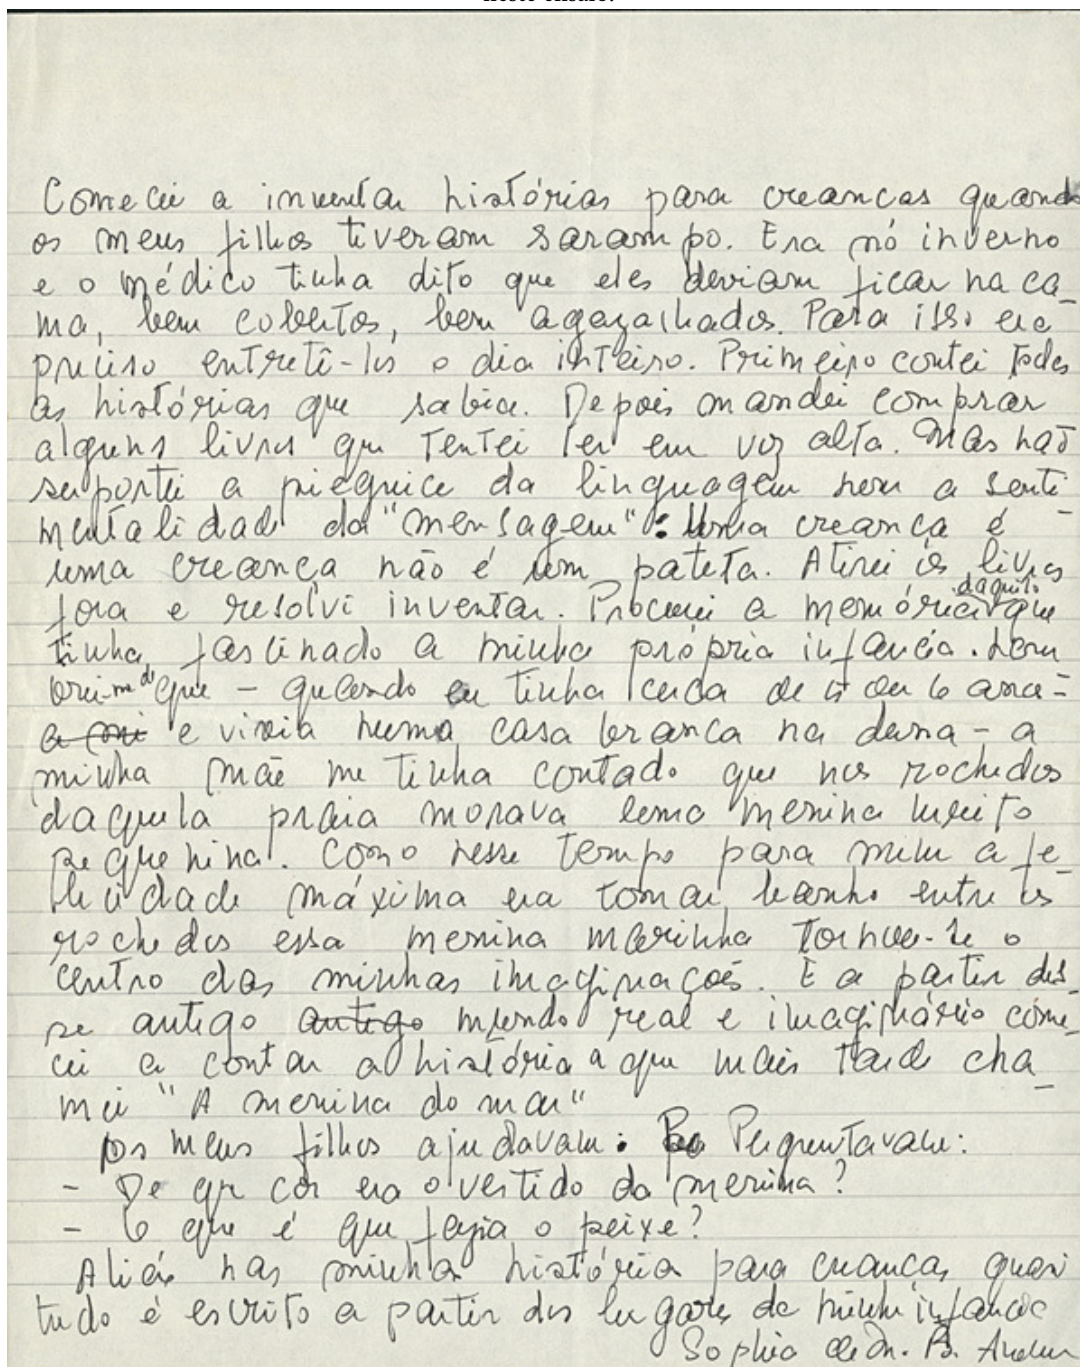 Comecei a inventar histórias para creanças quando
os meus filhos tiveram sarampo. Era nó inverno
e o médico tinha dito que eles deviam ficar na ca-
ma, bem cobertos, bem agazalhados. Para isso era
preciso entretê-los o dia inteiro. Primeiro contei todas
as histórias que sabia. Depois mandei comprar
alguns livros que tentei ler em voz alta. Mas não
suportei a pieguice da linguagem nem a senti-
mentalidade da "mensagem": Uma creança é
uma creança não é um pateta. Atirei os livros
fora e resolvi inventar. Procurei a memória daquilo que
tinha fascinado a minha própria infância. Lem
brei-me de que - quando eu tinha cerca de 5 ou 6 anos -
e vivia numa casa branca na duna - a
minha mãe me tinha contado que nos rochedos
daquela praia morava uma menina muito
pequenina. Como nesse tempo para mim a fe-
licidade máxima era tomar banho entre os
rochedos essa menina marinha tornou-se o
centro das minhas imaginações. E a partir des-
se antigo antigo mundo real e imaginário come-
cei a contar a história a que mais tarde cha-
mei "A menina do mar"
Os meus filhos ajudavam: Perguntavam:
- De que cor era o vestido da menina?
- O que é que fazia o peixe?
Aliás nas minhas história para creanças quasi
tudo é escrito a partir dos lugares da minha infância
Sophia de M. B. Andr